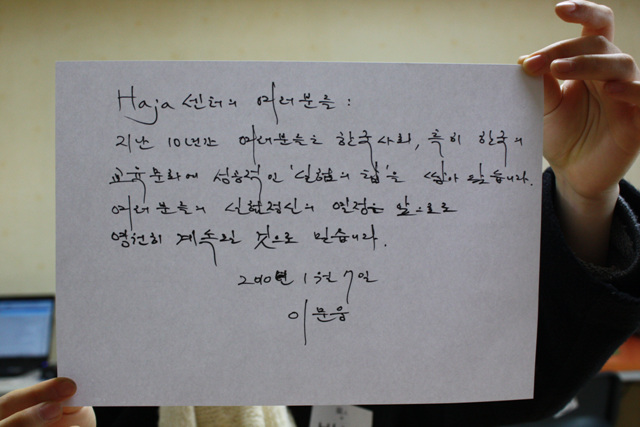 Haja 센터의 여러분들:
지난 10년간 여러분들은 한국사회, 특히 한국의
교육문화에 성공적인 '실험의 탑'을 쌓아 왔습니다.
여러분들의 실험정신의 열정은 앞으로도
영원히 계속될 것으로 믿습니다.
1월 7일
이문웅